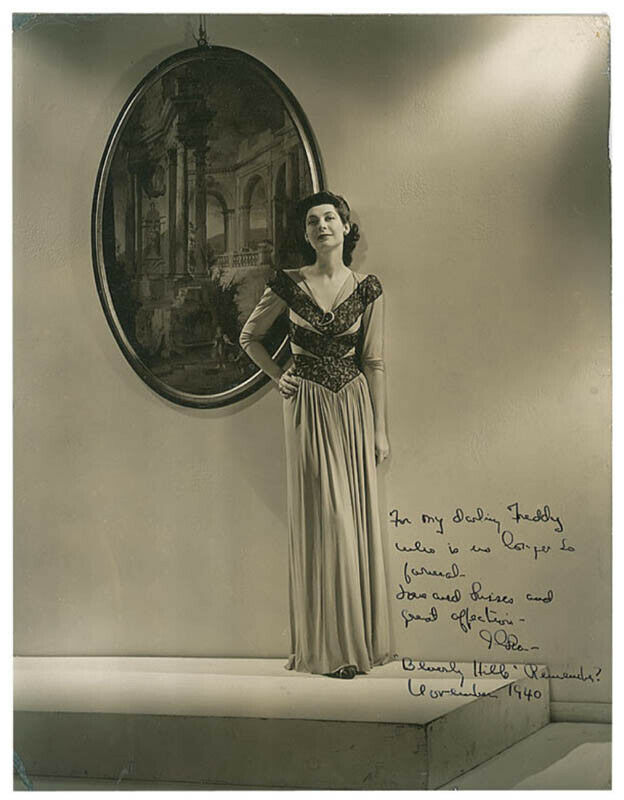 For my darling Freddy
who is no longer so
formal-
Love and kisses and
great affection-
"Beverly Hills" Remember?
November 1940